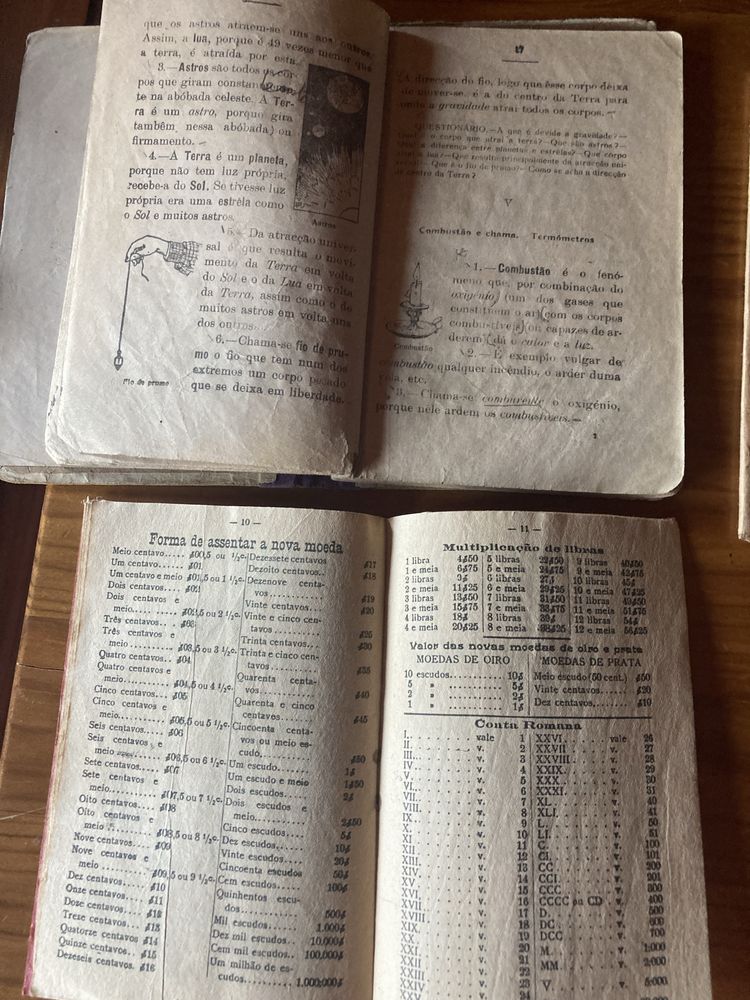 que os astros atraem-se uns aos outros.
Assim, a lua, porque é 49 vezes menor que
a terra, é atraída por esta.
3.—Astros são todos os cor-
pos que giram constantemen-
te na abóbada celeste. A Ter-
ra é um astro, porque gira
também nessa abóbada ou
firmamento.
4.—A Terra é um planeta,
porque não tem luz própria,
recebe-a do Sol. Se tivesse luz
própria era uma estrêla como
o Sol e muitos astros.
Astros
5.—Da atracção univer-
sal é que resulta o movi-
mento da Terra em volta
do Sol e o da Lua em volta
da Terra, assim como o de
muitos astros em volta uns
dos outros.
6.—Chama-se fio de pru-
mo o fio que tem num dos
extremos um corpo pesado
que se deixa em liberdade.
Fio de prumo
17
A direcção do fio, logo que êsse corpo deixa
de mover-se, é a do centro da Terra para
onde a gravidade atrai todos os corpos.
QUESTIONÁRIO.—A que é devida a gravidade?—
Qual é o corpo que atrai a terra?—Que são astros?—
Qual a diferença entre planetas e estrêlas?—Que corpo
atrai a lua?—Que resulta principalmente da atracção uni-
versal?—Que é o fio de prumo?—Como se acha a direcção
do centro da Terra?
V
Combustão e chama. Termómetros
1.—Combustão é o fenó-
meno que, por combinação do
oxigénio (um dos gases que
constituem o ar) com os corpos
combustíveis (ou capazes de ar-
derem) dá o calor e a luz.
Combustão
2.—É exemplo vulgar de
combustão qualquer incêndio, o arder duma
vela, etc.
3.—Chama-se comburente o oxigénio,
porque nele ardem os combustíveis.—
— 10 —
Forma de assentar a nova moeda
Meio centavo..... $00,5 ou 1/2c.
Um centavo...... $01
Um centavo e meio $01,5 ou 1 1/2c.
Dois centavos.... $02
Dois centavos e
meio....... $02,5 ou 2 1/2c.
Três centavos.... $03
Três centavos e
meio....... $03,5 ou 3 1/2c.
Quatro centavos... $04
Quatro centavos e
meio....... $04,5 ou 4 1/2c.
Cinco centavos... $05
Cinco centavos e
meio....... $05,5 ou 5 1/2c.
Seis centavos.... $06
Seis centavos e
meio....... $06,5 ou 6 1/2c.
Sete centavos.... $07
Sete centavos e
meio....... $07,5 ou 7 1/2c.
Oito centavos.... $08
Oito centavos e
meio....... $08,5 ou 8 1/2c.
Nove centavos.... $09
Nove centavos e
meio....... $09,5 ou 9 1/2c.
Dez centavos..... $10
Onze centavos.... $11
Doze centavos.... $12
Treze centavos... $13
Quatorze centavos $14
Quinze centavos.. $15
Dezeseis centavos. $16
Dezessete centavos $17
Dezoito centavos.. $18
Dezenove centa-
vos......... $19
Vinte centavos... $20
Vinte e cinco cen-
tavos....... $25
Trinta centavos.. $30
Trinta e cinco cen-
tavos....... $35
Quarenta centa-
vos......... $40
Quarenta e cinco
centavos..... $45
Cincoenta centa-
vos ou meio es-
cudo........ $50
Um escudo....... 1$
Um escudo e meio 1$50
Dois escudos..... 2$
Dois escudos e
meio........ 2$50
Cinco escudos.... 5$
Dez escudos...... 10$
Vinte escudos.... 20$
Cincoenta escudos 50$
Cem escudos...... 100$
Quinhentos escu-
dos......... 500$
Mil escudos...... 1.000$
Dez mil escudos.. 10.000$
Cem mil escudos.. 100.000$
Um milhão de es-
cudos....... 1.000:000$
— 11 —
Multiplicação de libras
1 libra 4$50 5 libras 22$50 9 libras 40$50
1 e meia 6$75 5 e meia 24$75 9 e meia 42$75
2 libras 9$ 6 libras 27$ 10 libras 45$
2 e meia 11$25 6 e meia 29$25 10 e meia 47$25
3 libras 13$50 7 libras 31$50 11 libras 49$50
3 e meia 15$75 7 e meia 33$75 11 e meia 51$75
4 libras 18$ 8 libras 36$ 12 libras 54$
4 e meia 20$25 8 e meia 38$25 12 e meia 56$25
Valor das novas moedas de oiro e prata
MOEDAS DE OIRO
10 escudos.......... 10$
5 » .......... 5$
2 » .......... 2$
1 » .......... 1$
MOEDAS DE PRATA
Meio escudo (50 cent.) $50
Vinte centavos..... $20
Dez centavos....... $10
Conta Romana
I. vale 1 XXVI. vale 26
II. v. 2 XXVII v. 27
III. v. 3 XXVIII v. 28
IV. v. 4 XXIX. v. 29
V. v. 5 XXX. v. 30
VI. v. 6 XXXI. v. 31
VII. v. 7 XL. v. 40
VIII. v. 8 XLI. v. 41
IX. v. 9 L. v. 50
X. v. 10 LI. v. 51
XI. v. 11 C. v. 100
XII. v. 12 CI. v. 101
XIII. v. 13 CC v. 200
XIV. v. 14 CCI. v. 201
XV. v. 15 CCC v. 300
XVI. v. 16 CCCC ou CD v. 400
XVII. v. 17 D. v. 500
XVIII. v. 18 DC v. 600
XIX. v. 19 DCC v. 700
XX. v. 20 M. v. 1:000
XXI v. 21 MM. v. 2:000
XXII v. 22
XXIII v. 23 V. v. 5:000
XXIV 24
XXV